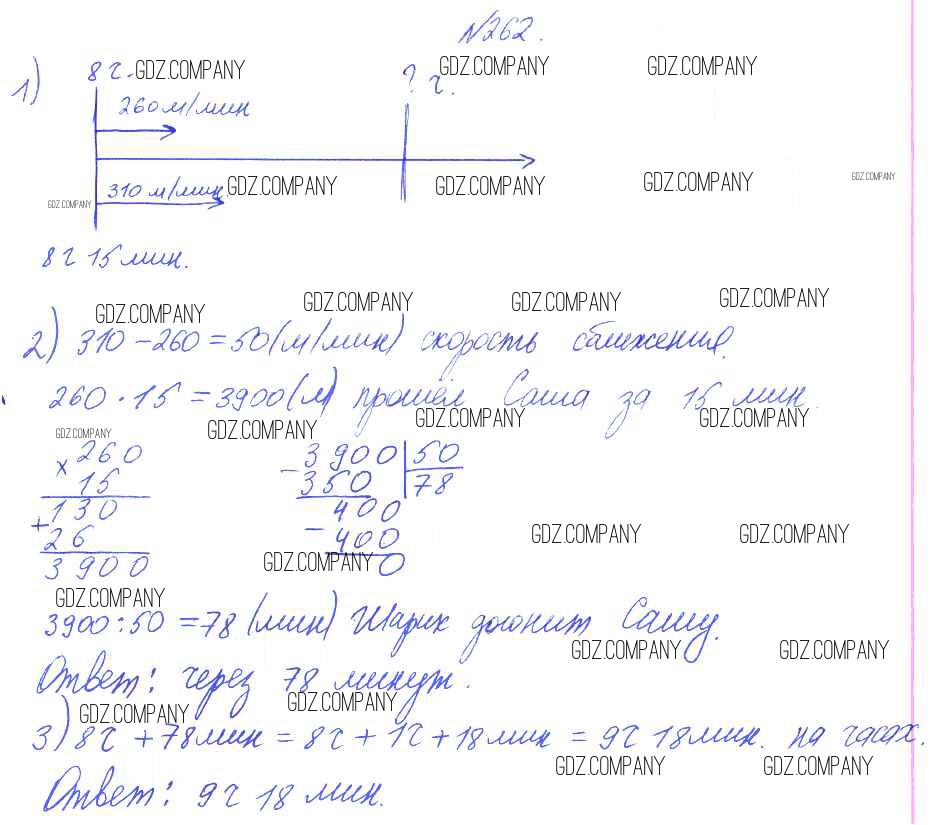 №262.
1) 8 ч. GDZ.COMPANY ? ч. GDZ.COMPANY GDZ.COMPANY
260 м/мин
310 м/мин GDZ.COMPANY GDZ.COMPANY GDZ.COMPANY GDZ.COMPANY
GDZ.COMPANY
8 ч 15 мин.
GDZ.COMPANY GDZ.COMPANY GDZ.COMPANY GDZ.COMPANY
2) 310 - 260 = 50 (м/мин) скорость сближения.
260 · 15 = 3900 (м) прошёл Саша за 15 мин.
GDZ.COMPANY GDZ.COMPANY GDZ.COMPANY GDZ.COMPANY
× 260 - 3900 | 50
15 350 78
+ 130 400
26 - 400
3900 0
GDZ.COMPANY GDZ.COMPANY GDZ.COMPANY
GDZ.COMPANY
3900 : 50 = 78 (мин) Шарик догонит Сашу.
GDZ.COMPANY GDZ.COMPANY
Ответ: через 78 минут.
GDZ.COMPANY GDZ.COMPANY
3) 8ч + 78мин = 8ч + 1ч + 18мин = 9ч 18мин. на часах.
GDZ.COMPANY GDZ.COMPANY
Ответ: 9 ч 18 мин.